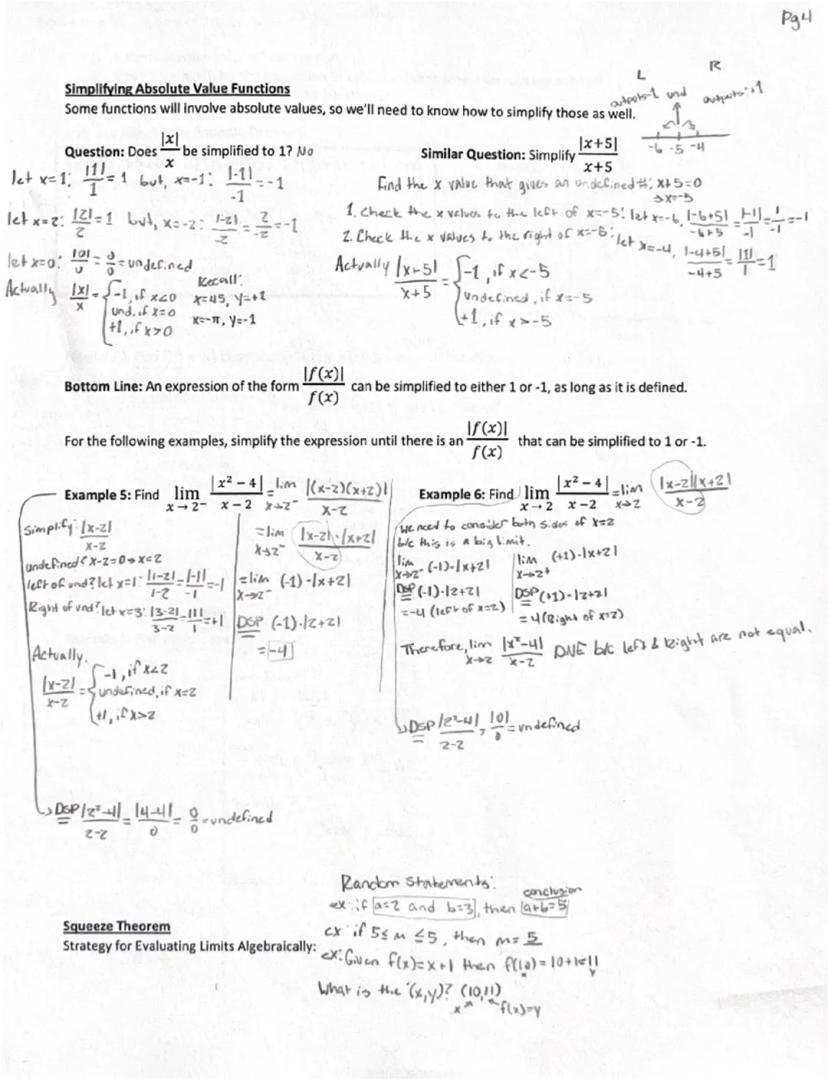 Pg 4
Simplifying Absolute Value Functions
Some functions will involve absolute values, so we'll need to know how to simplify those as well.
L R
outputs -1 und outputs: +1
-6 -5 -4
Question: Does |x|/x be simplified to 1? No
let x=1: |1|/1 = 1 but, x=-1: |-1|/-1 = -1
let x=2: |2|/2 = 1 but, x=-2: |-2|/-2 = 2/-2 = -1
let x=0: |0|/0 = 0/0 = undefined
Actually |x|/x = { -1, if x<0
und, if x=0
+1, if x>0
Recall:
x=45, y=+1
x=-π, y=-1
Similar Question: Simplify |x+5|/x+5
Find the x value that gives an undefined #: x+5=0
→x=-5
1. Check the x values to the left of x=-5: let x=-6, |-6+5|/-6+5 = |-1|/-1 = 1/-1 = -1
2. Check the x values to the right of x=-5: let x=-4, |-4+5|/-4+5 = |1|/1 = 1
Actually |x-5|/x+5 = { -1, if x<-5
undefined, if x=-5
+1, if x>-5
Bottom Line: An expression of the form |f(x)|/f(x) can be simplified to either 1 or -1, as long as it is defined.
For the following examples, simplify the expression until there is an |f(x)|/f(x) that can be simplified to 1 or -1.
Example 5: Find lim x→2⁻ |x² − 4|/x − 2 = lim x→2⁻ |(x-2)(x+2)|/x-2
Simplify: |x-2|/x-2
undefined? x-2=0→x=2
left of und? let x=1: |1-2|/1-2 = |-1|/-1 = -1
Right of und? let x=3: |3-2|/3-2 = |1|/1 = +1
Actually.
|x-2|/x-2 = { -1, if x<2
undefined, if x=2
+1, if x>2
= lim x→2⁻ |x-2|·|x+2|/x-2
= lim x→2⁻ (-1)·|x+2|
DSP (-1)·|2+2|
= -4
DSP |2²-4|/2-2 = |4-4|/0 = 0/0 = undefined
Example 6: Find lim x→2 |x² − 4|/x − 2 = lim x→2 |x-2||x+2|/x-2
We need to consider both sides of x=2
b/c this is a big limit.
lim x→2⁻ (-1)·|x+2|
DSP (-1)·|2+2|
= -4 (left of x=2)
lim x→2⁺ (+1)·|x+2|
DSP (+1)·|2+2|
= 4 (Right of x=2)
Therefore, lim x→2 |x²-4|/x-2 DNE b/c left & Right are not equal.
DSP |2²-4|/2-2 = |0|/0 = undefined
Random Statements:
conclusion
ex: if a=2 and b=3, then a+b=5
ex: if 5≤m≤5, then m=5
Squeeze Theorem
Strategy for Evaluating Limits Algebraically:
ex: Given f(x)=x+1 then f(10)=10+1=11
y
What is the (x,y)? (10,11)
x f(x)=y